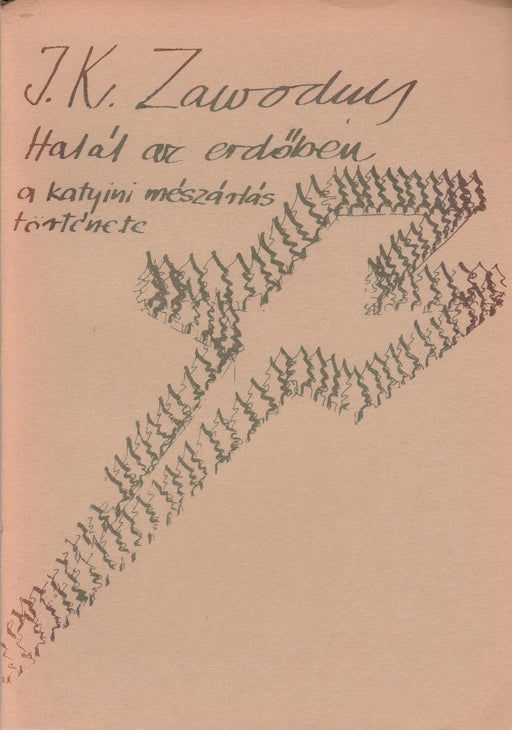 J. K. Zawodny
Halál az erdőben
a katyini mészárlás
története